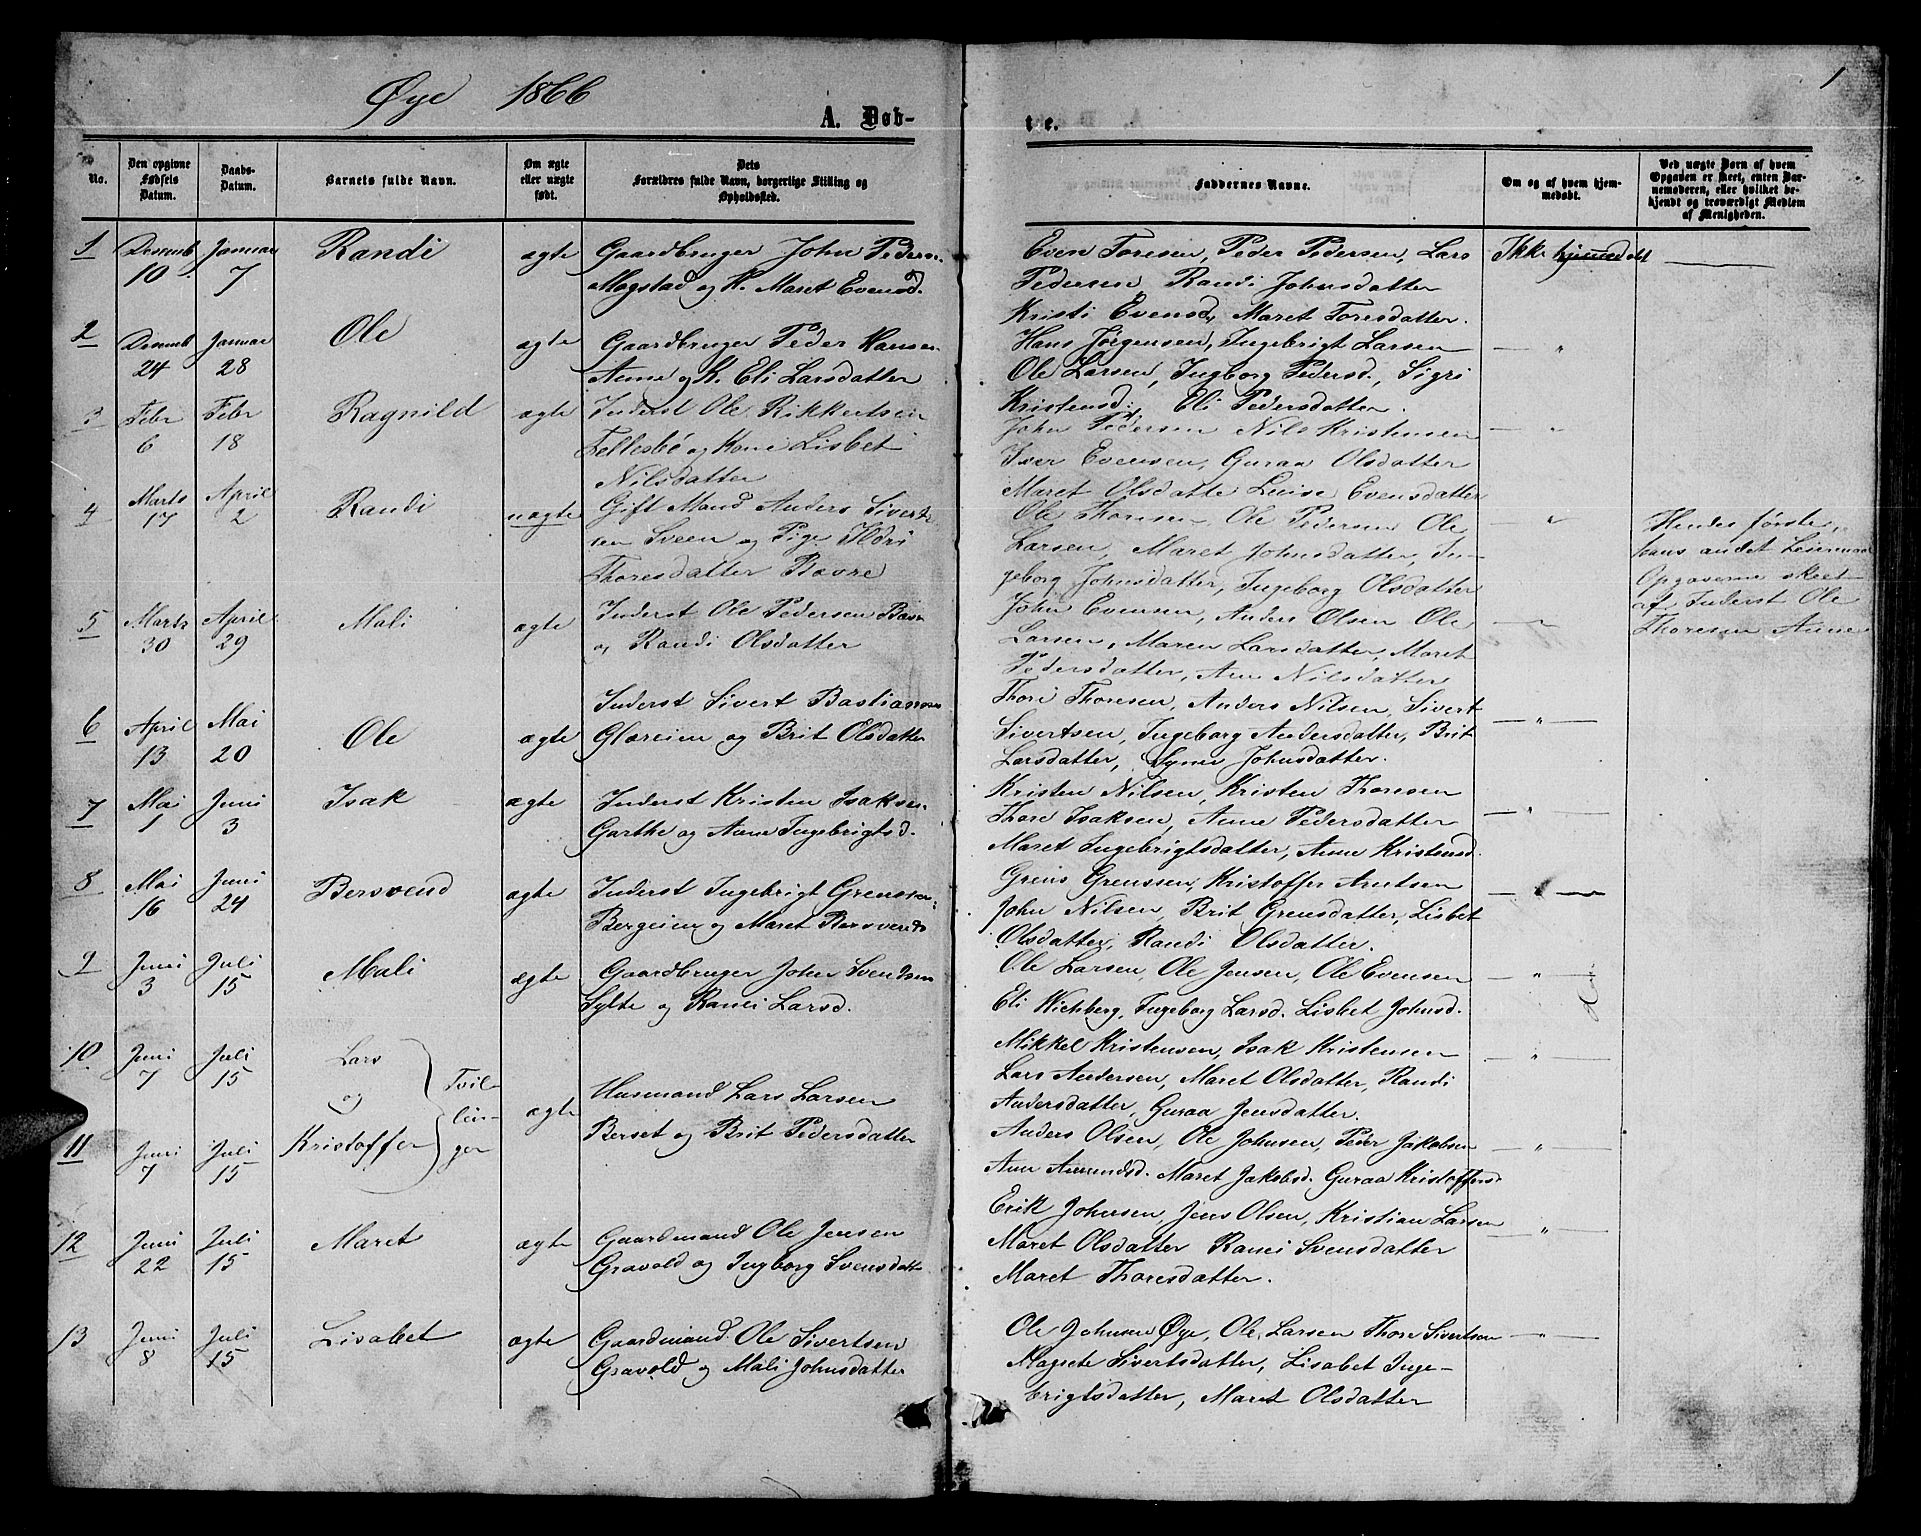 Øye 1866
1
A. Døb-
te.
No.
Den opgivne Fødsels Datum.
Daabs-Datum.
Barnets fulde Navn.
Om ægte eller uægte født.
Dets Forældres fulde Navn, borgerlige Stilling og Opholdssted.
Faddernes Navne.
Om og af hvem hjemmedøbt.
Ved uægte Børn af hvem Opgaven er skeet, enten Barnemoderen, eller hvilket bekjendt og troværdigt Medlem af Menigheden.
1 Desemb 10 Januar 7 Randi ægte
Gaardbruger John Peders.
Mogstad og K. Maret Evensd.
Even Toresen, Peder Pedersen, Lars
Pedersen Randi Johnsdatter
Kristi Evensd, Maret Toresdatter.
Ikke hjemmedøbt
2 Desemb 24 Januar 28 Ole ægte
Gaardbruger Peder Hansen
Aune og K. Eli Larsdatter
Hans Jørgensen, Ingebrigt Larsen
Ole Larsen, Ingborg Pedersd., Sigri
Kristensd. Eli Pedersdatter.
— " —
3 Febr 6 Febr 18 Ragnild ægte
Inderst Ole Rikkertsen
Fellesbø og Kone Lisbet
Nilsdatter
John Pedersen Nils Kristensen
Iver Evensen, Guraa Olsdatter
Maret Olsdatte Luise Evensdatter
— " —
4 Marts 17 April 2 Randi uægte
Gift Mand Anders Siverts
sen Sveen og Pige Ildri
Thoresdatter Bævre
Ole Thoresen, Ole Pedersen Ole
Larsen, Maret Johnsdatter, In-
geborg Johnsdatter, Ingeborg Olsdatter
— " —
Hendes første,
hans andet Leiermaal
Opgaverne skeet
af Inderst Ole
Thoresen Aune
5 Marts 30 April 29 Mali ægte
Inderst Ole Pedersen Bævr
og Randi Olsdatter
John Evensen, Anders Olsen Ole
Larsen, Maren Larsdatter, Maret
Pedersdatter, Ane Nilsdatter
— " —
6 April 13 Mai 20 Ole ægte
Inderst Sivert Bastiansen
Glæreien og Brit Olsdatter
Thore Thoresen, Anders Nilsen, Sivert
Sivertsen, Ingeborg Andersdatter, Brit
Larsdatter, Synne Johnsdatter.
— " —
7 Mai 1 Juni 3 Isak ægte
Inderst Kristen Isaksen
Garthe og Anne Ingebrigtsd.
Kristen Nilsen, Kristen Thoresen
Thore Isaksen, Anne Pedersdatter
Maret Ingebrigtsdatter, Anne Kristensd.
— " —
8 Mai 16 Juni 24 Bersvend ægte
Inderst Ingebrigt Grenssen
Bergeien og Maret Bersvends
Grens Grenssen, Kristoffer Arntsen
John Nilsen, Brit Grensdatter, Lisbet
Olsdatter, Randi Olsdatter.
— " —
9 Juni 3 Juli 15 Mali ægte
Gaardbruger John Svendsen
Sylte og Randi Larsd.
Ole Larsen, Ole Jensen, Ole Evensen
Eli Wichberg, Ingeborg Larsd. Lisbet Johnsd.
— " —
10 Juni 7 Juli 15 Lars
og
11 Juni 7 Juli 15 Kristoffer
Tvil-
lin-
ger
ægte
Husmand Lars Larsen
Berset og Brit Pedersdatter
Mikkel Kristensen, Isak Kristensen
Lars Andersen, Maret Olsdatter, Randi
Andersdatter, Guraa Jensdatter.
— " —
Anders Olsen, Ole Johnsen, Peder Jakobsen
Ane Amundsd. Maret Jakobsd. Guraa Kristoffersd
— " —
12 Juni 22 Juli 15 Maret ægte
Gaardmand Ole Jensen
Gravold og Ingborg Svensdatt
Erik Johnsen, Jens Olsen, Kristian Larsen
Maret Olsdatter Randi Svensdatter
Maret Thoresdatter.
— " —
13 Juni 8 Juli 15 Lisabet ægte
Gaardmand Ole Sivertsen
Gravold og Mali Johnsdatter
Ole Johnsen Øye, Ole Larsen Thore Sivertsen
Magrete Sivertsdatter, Lisabet Inge-
brigtsdatter, Maret Olsdatter
— " —